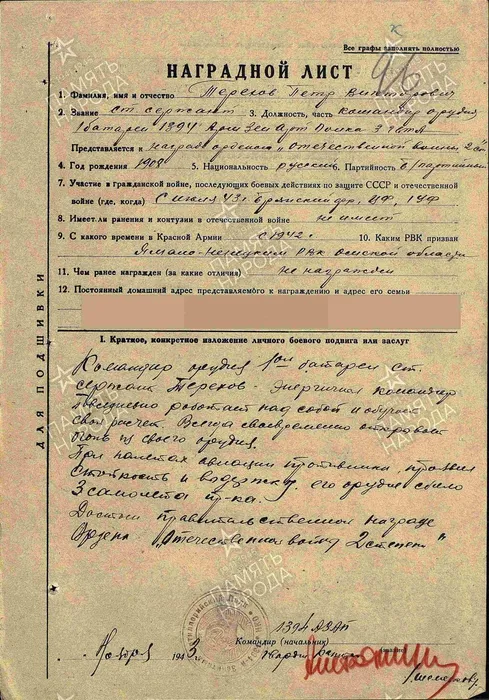 Все графы заполнять полностью
96
НАГРАДНОЙ ЛИСТ
1. Фамилия, имя и отчество Терехов Петр Викторович
2. Звание ст. сержант 3. Должность, часть командир орудия
1 батареи 1394 Арт Полка
Представляется к награде орденом Отечественной войны 2 ст
4. Год рождения 1908 5. Национальность русский 6. Партийность б/партийный
7. Участие в гражданской войне, последующих боевых действиях по защите СССР и отечественной
войне (где, когда) С июля 43 г. Брянский фр.
8. Имеет ли ранения и контузии в отечественной войне не имеет
9. С какого времени в Красной Армии с 1942 г. 10. Каким РВК призван
Ямало-Ненецким РВК Омской области
11. Чем ранее награжден (за какие отличия) не награжден
12. Постоянный домашний адрес представляемого к награждению и адрес его семьи
I. Краткое, конкретное изложение личного боевого подвига или заслуг
Командир орудия 1ой батареи ст.
сержант Терехов - энергичный командир
повседневно работает над собой и обучает
свой расчет. Всегда своевременно открывает
огонь из своего орудия.
При налетах авиации противника, проявил
стойкость и выдержку, его орудие сбило
3 самолета пр-ка.
Достоин правительственной награде
Ордена "Отечественной войны 2 степени"
1394 АЗАП
Командир (начальник)
Ноября 1943
ДЛЯ ПОДШИВКИ
ПАМЯТЬ НАРОДА